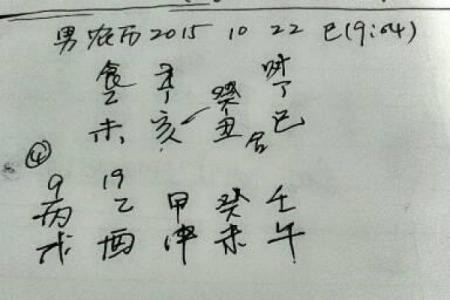 男 农历 2015 10 22 巳(9:04)
食 才
乙 丁 癸 丁
未 亥 丑 巳
④
9 19
丙 乙 甲 癸 壬
戌 酉 申 未 午